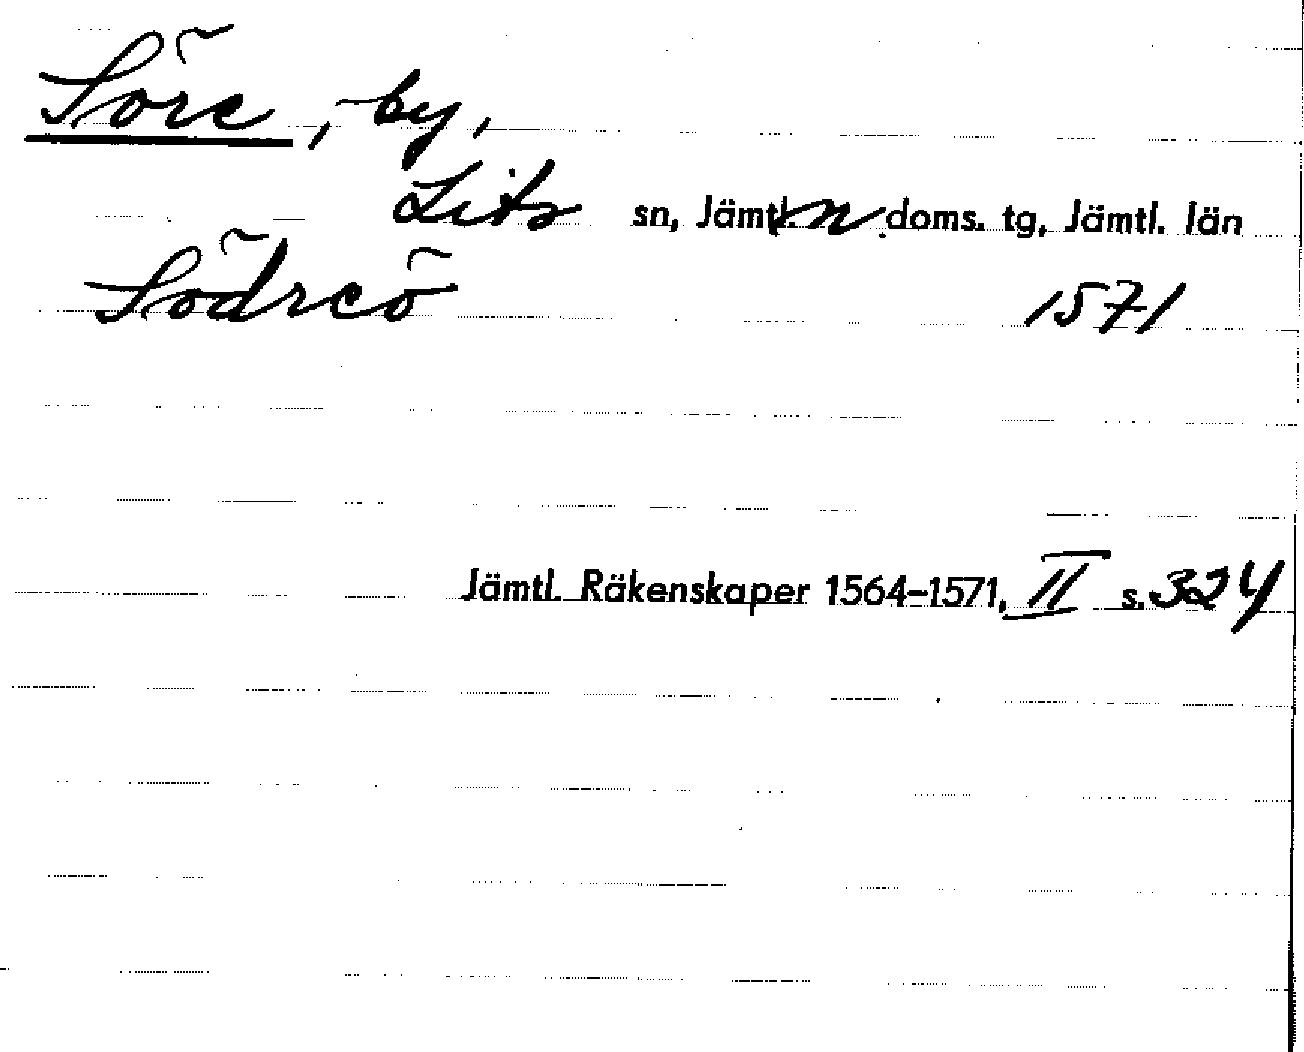 Söre, by,
Lits sn, Jämtl. n doms. tg, Jämtl. län
Södreö 1571
Jämtl. Räkenskaper 1564-1571, II s. 324